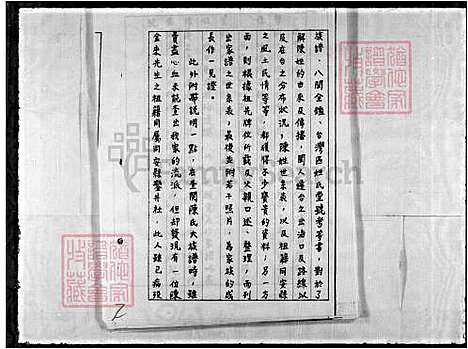 族譜、八閩全鑑、台灣區姓氏堂號考等書,對於了
解陳姓的由來及傳播,閩人遷台之出海口及路線以
及在台之分布狀況,陳姓世系表,以及祖籍同安縣
之風土民情等等,都獲得不少寶貴的資料;另一方
面,則根據祖先牌位所載及父親口述、整理,而列
出家譜之世系表;最後並附若干照片,為家族的成
長作一見證。
此外附帶說明一點,在查閱陳氏大族譜時,雖
費盡心血未能查出我家的流派,但却發現有一位陳
金來先生之祖籍同屬同安縣鑒井社,此人雖已病殁